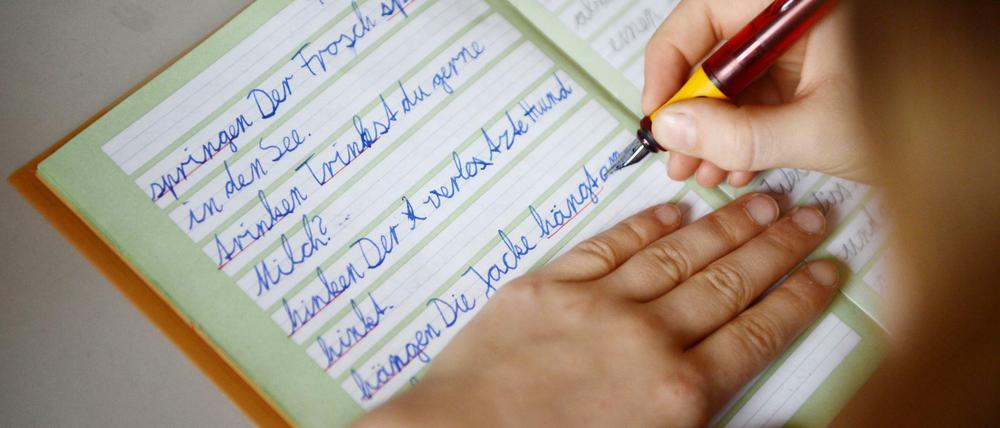 springen Der Frosch sp
in den See.
trinken Trinkst du gerne
Milch?
hinken Der verlestzte Hund
hinkt.
hängen Die Jacke hängt am